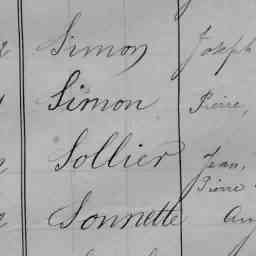 Simon Joseph
Simon Pierre,
Sollier Jean,
Pierre
Sonnette